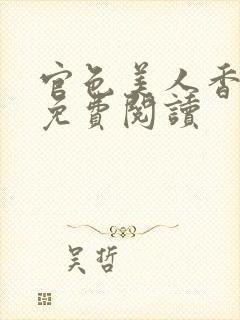 官色美人香
免費閱讀
吴哲